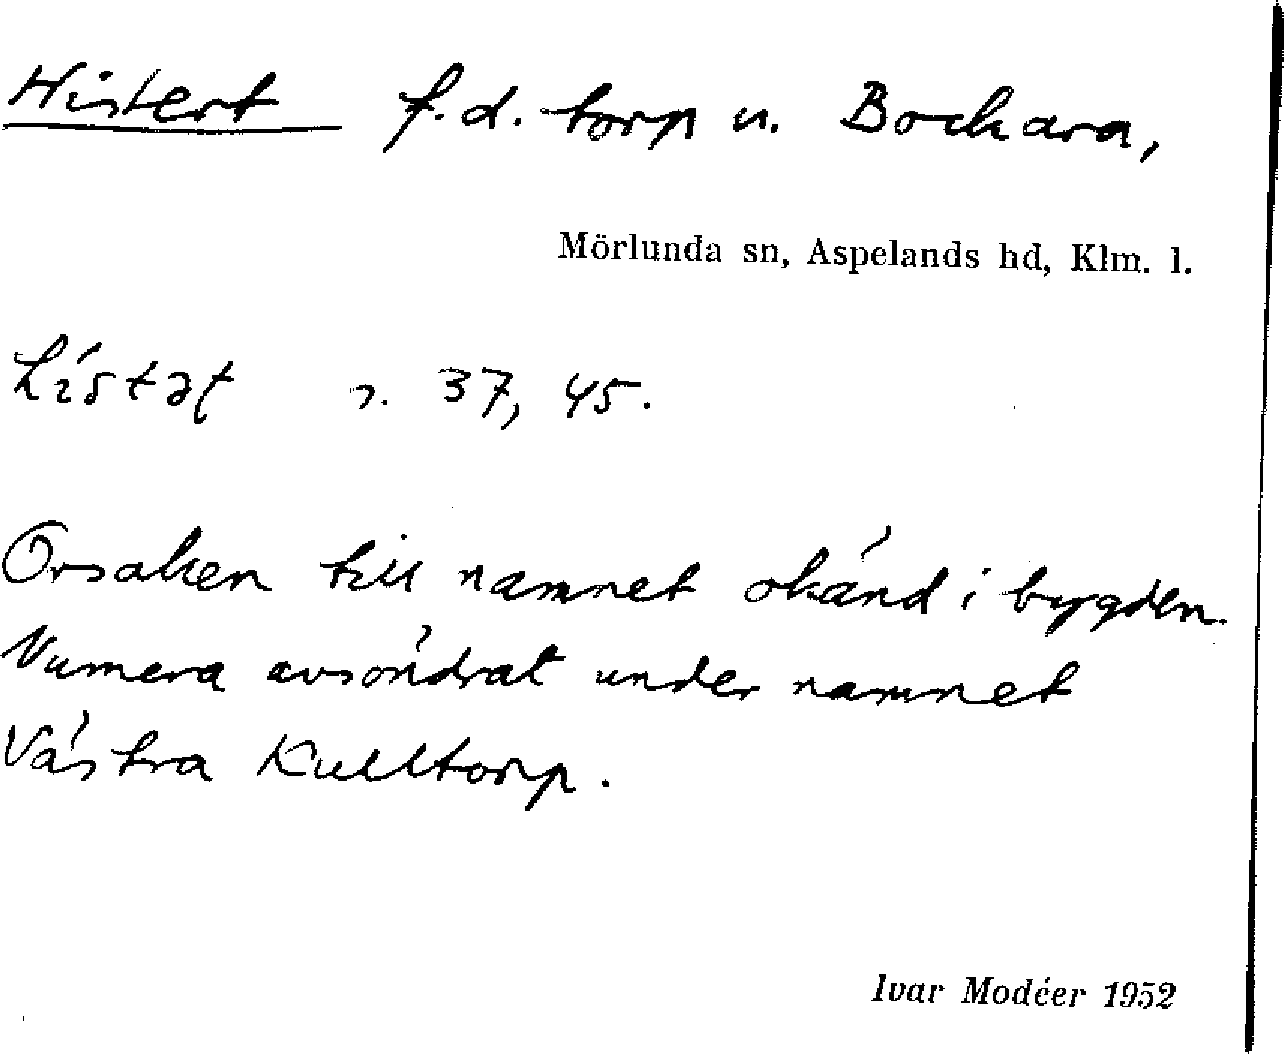 Histert f.d. torp u. Bockara,
Mörlunda sn, Aspelands hd, Klm. l.
s. 37, 45.
Orsaken till namnet okänd i bygden.
Numera avsöndrat under namnet
Västra Kulltorp.
Ivar Modéer 1952